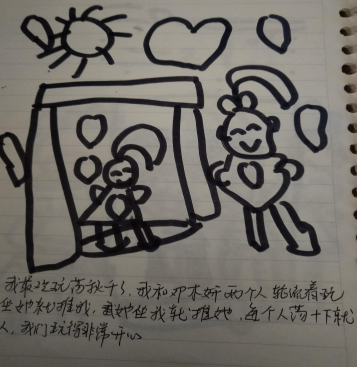 我最喜欢玩荡秋千了，我和邓木妍两个人轮流着玩
坐她就推我，我她坐我就推她，每个人荡十下就
人，我们玩得非常开心